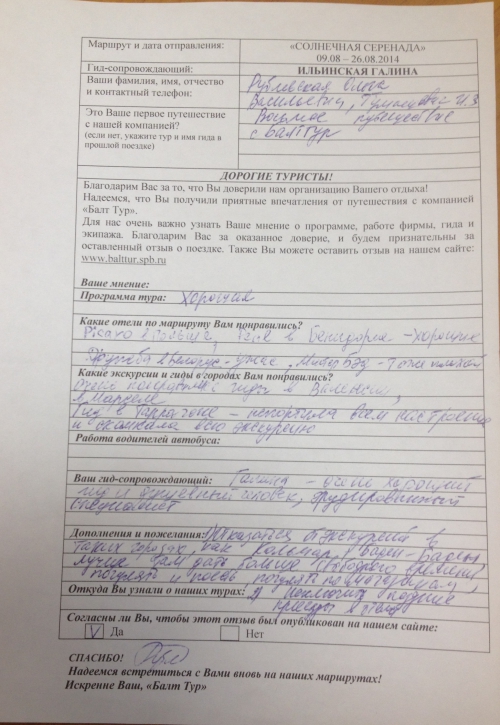 Маршрут и дата отправления: «СОЛНЕЧНАЯ СЕРЕНАДА»
09.08 – 26.08.2014
Гид-сопровождающий: ИЛЬИНСКАЯ ГАЛИНА
Ваши фамилия, имя, отчество
и контактный телефон:
Васильевна,
Это Ваше первое путешествие
с нашей компанией?
(если нет, укажите тур и имя гида в
прошлой поездке)
Восьмое путешествие
с БалтТур
ДОРОГИЕ ТУРИСТЫ!
Благодарим Вас за то, что Вы доверили нам организацию Вашего отдыха!
Надеемся, что Вы получили приятные впечатления от путешествия с компанией
«Балт Тур».
Для нас очень важно узнать Ваше мнение о программе, работе фирмы, гида и
экипажа. Благодарим Вас за оказанное доверие, и будем признательны за
оставленный отзыв о поездке. Также Вы можете оставить отзыв на нашем сайте:
www.balttur.spb.ru
Ваше мнение:
Программа тура: Хорошая
Какие отели по маршруту Вам понравились?
в Бенидорме - хорошие
- ужас,
Какие экскурсии и гиды в городах Вам понравились?
очень понравились гиды в Валенсии,
в Марселе
Гид в Таррагоне – испортила всем настроение
и скомкала всю экскурсию
Работа водителей автобуса:
Ваш гид-сопровождающий: Галина - очень хороший
гид и душевный человек, эрудированный
специалист
Дополнения и пожелания: Отказаться от экскурсий в
таких городах, как Кольмар, Баден-Баден
лучше дать больше свободного времени,
погулять
Откуда Вы узнали о наших турах:
Согласны ли Вы, чтобы этот отзыв был опубликован на нашем сайте:
V Да Нет
СПАСИБО!
Надеемся встретиться с Вами вновь на наших маршрутах!
Искренне Ваш, «Балт Тур»